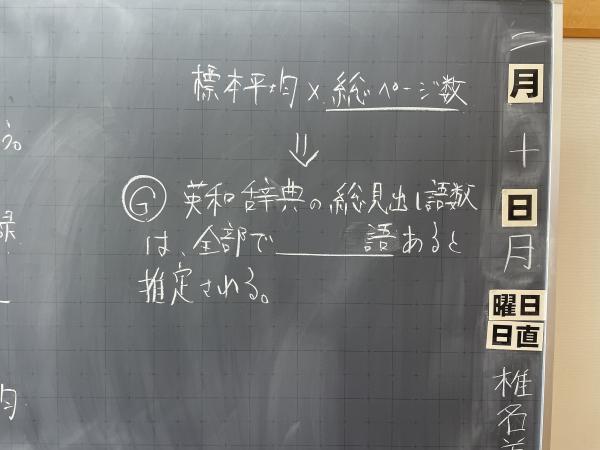 標本平均×総ページ数
⇓
Ⓖ 英和辞典の総見出し語数
は、全部で 語あると
推定される。
う。
録
均
二
月
十
日
月
曜日
日直
椎
名